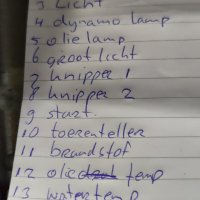 3 Licht
4 dynamo lamp
5 olie lamp
6 groot licht
7 knipper 1
8 knipper 2
9 start.
10 toerenteller
11 brandstof
12 olie temp
13 water temp